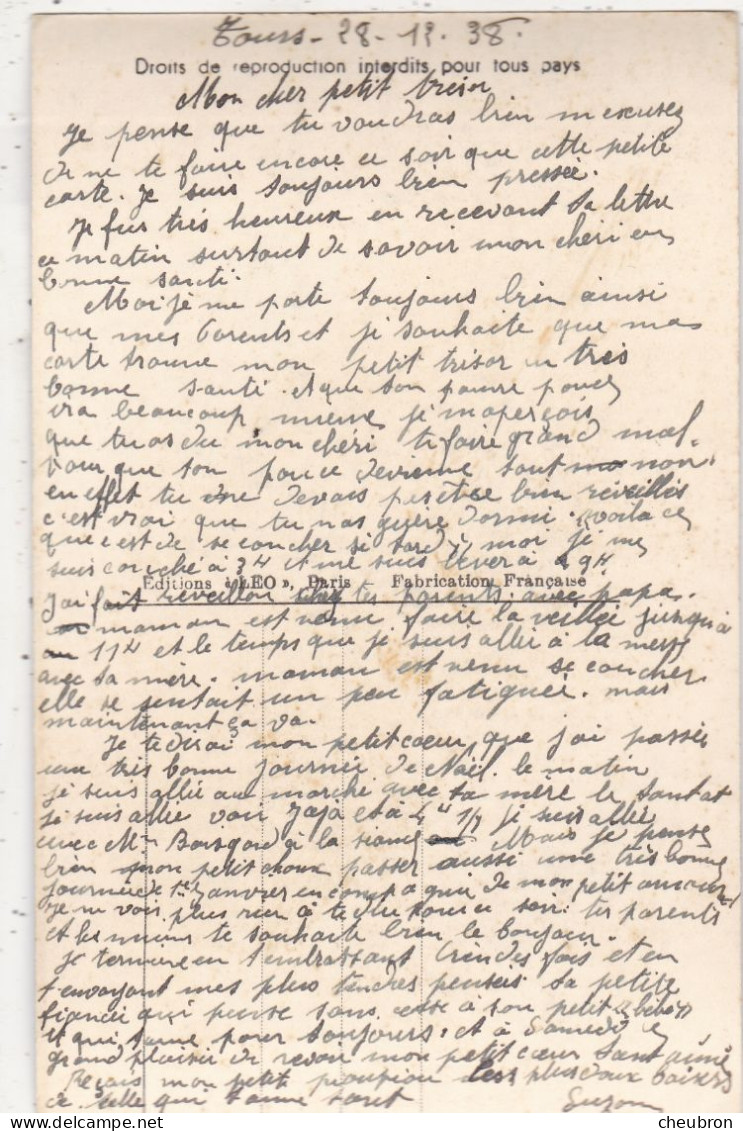 Tours - 28 - 12. 38.
Droits de reproduction interdits pour tous pays
Mon cher petit trésor
Je pense que tu voudras bien m'excusez
de ne te faire encore ce soir que cette petite
carte. Je suis toujours bien pressée.
Je fus très heureux en recevant ta lettre
ce matin surtout de savoir mon chéri en
bonne santé.
Moi je me porte toujours bien ainsi
que mes Parents et je souhaite que ma
carte trouve mon petit trésor en très
bonne santé. et que ton pauvre pouce
ira beaucoup mieux, je m'aperçois
que tu as du mon chéri te faire grand mal.
pour que ton pouce devienne tout noir
en effet tu ne devais peretre bien réveillés
c'est vrai que tu nas guère dormi. voila ce
que c'est de se coucher si tard, moi je me
suis couché à 3H et me suis lever à 9H
Editions « LEO », Paris Fabrication Française
J'ai fait réveillon chez tes parents avec papa.
maman est venu faire la veillée jusqu'à
11H et le temps que je suis allée à la messe
avec ta mère. maman est venu se coucher
elle se sentait un peu fatiguée. mais
maintenant ça va.
Je te dirai mon petit cœur, que j'ai passée
une très bonne journée de Noël. le matin
je suis allée au marché avec ta mère le tantot
je suis allée voir Jaja et à 4H 1/2 je suis allée
avec Mme Boisgard à la Mais je pense
bien mon petit choux passer aussi une très bonne
journée le 1er Janvier en compagnie de mon petit amour
Je ne vois plus rien à te dire pour ce soir. tes parents
et les miens te souhaite bien le bonjour.
Je termine en t'embrassant bien des fois et en
t'envoyant mes plus tendres pensées ta petite
fiancée qui pense sans cesse à son petit
et qui t'aime pour toujours. et à Samedi le
grand plaisir de revoir mon petit cœur tant aimé
Reçois mon petit pioupiou les plus doux baisers
de celle qui t'aime tant Suzon